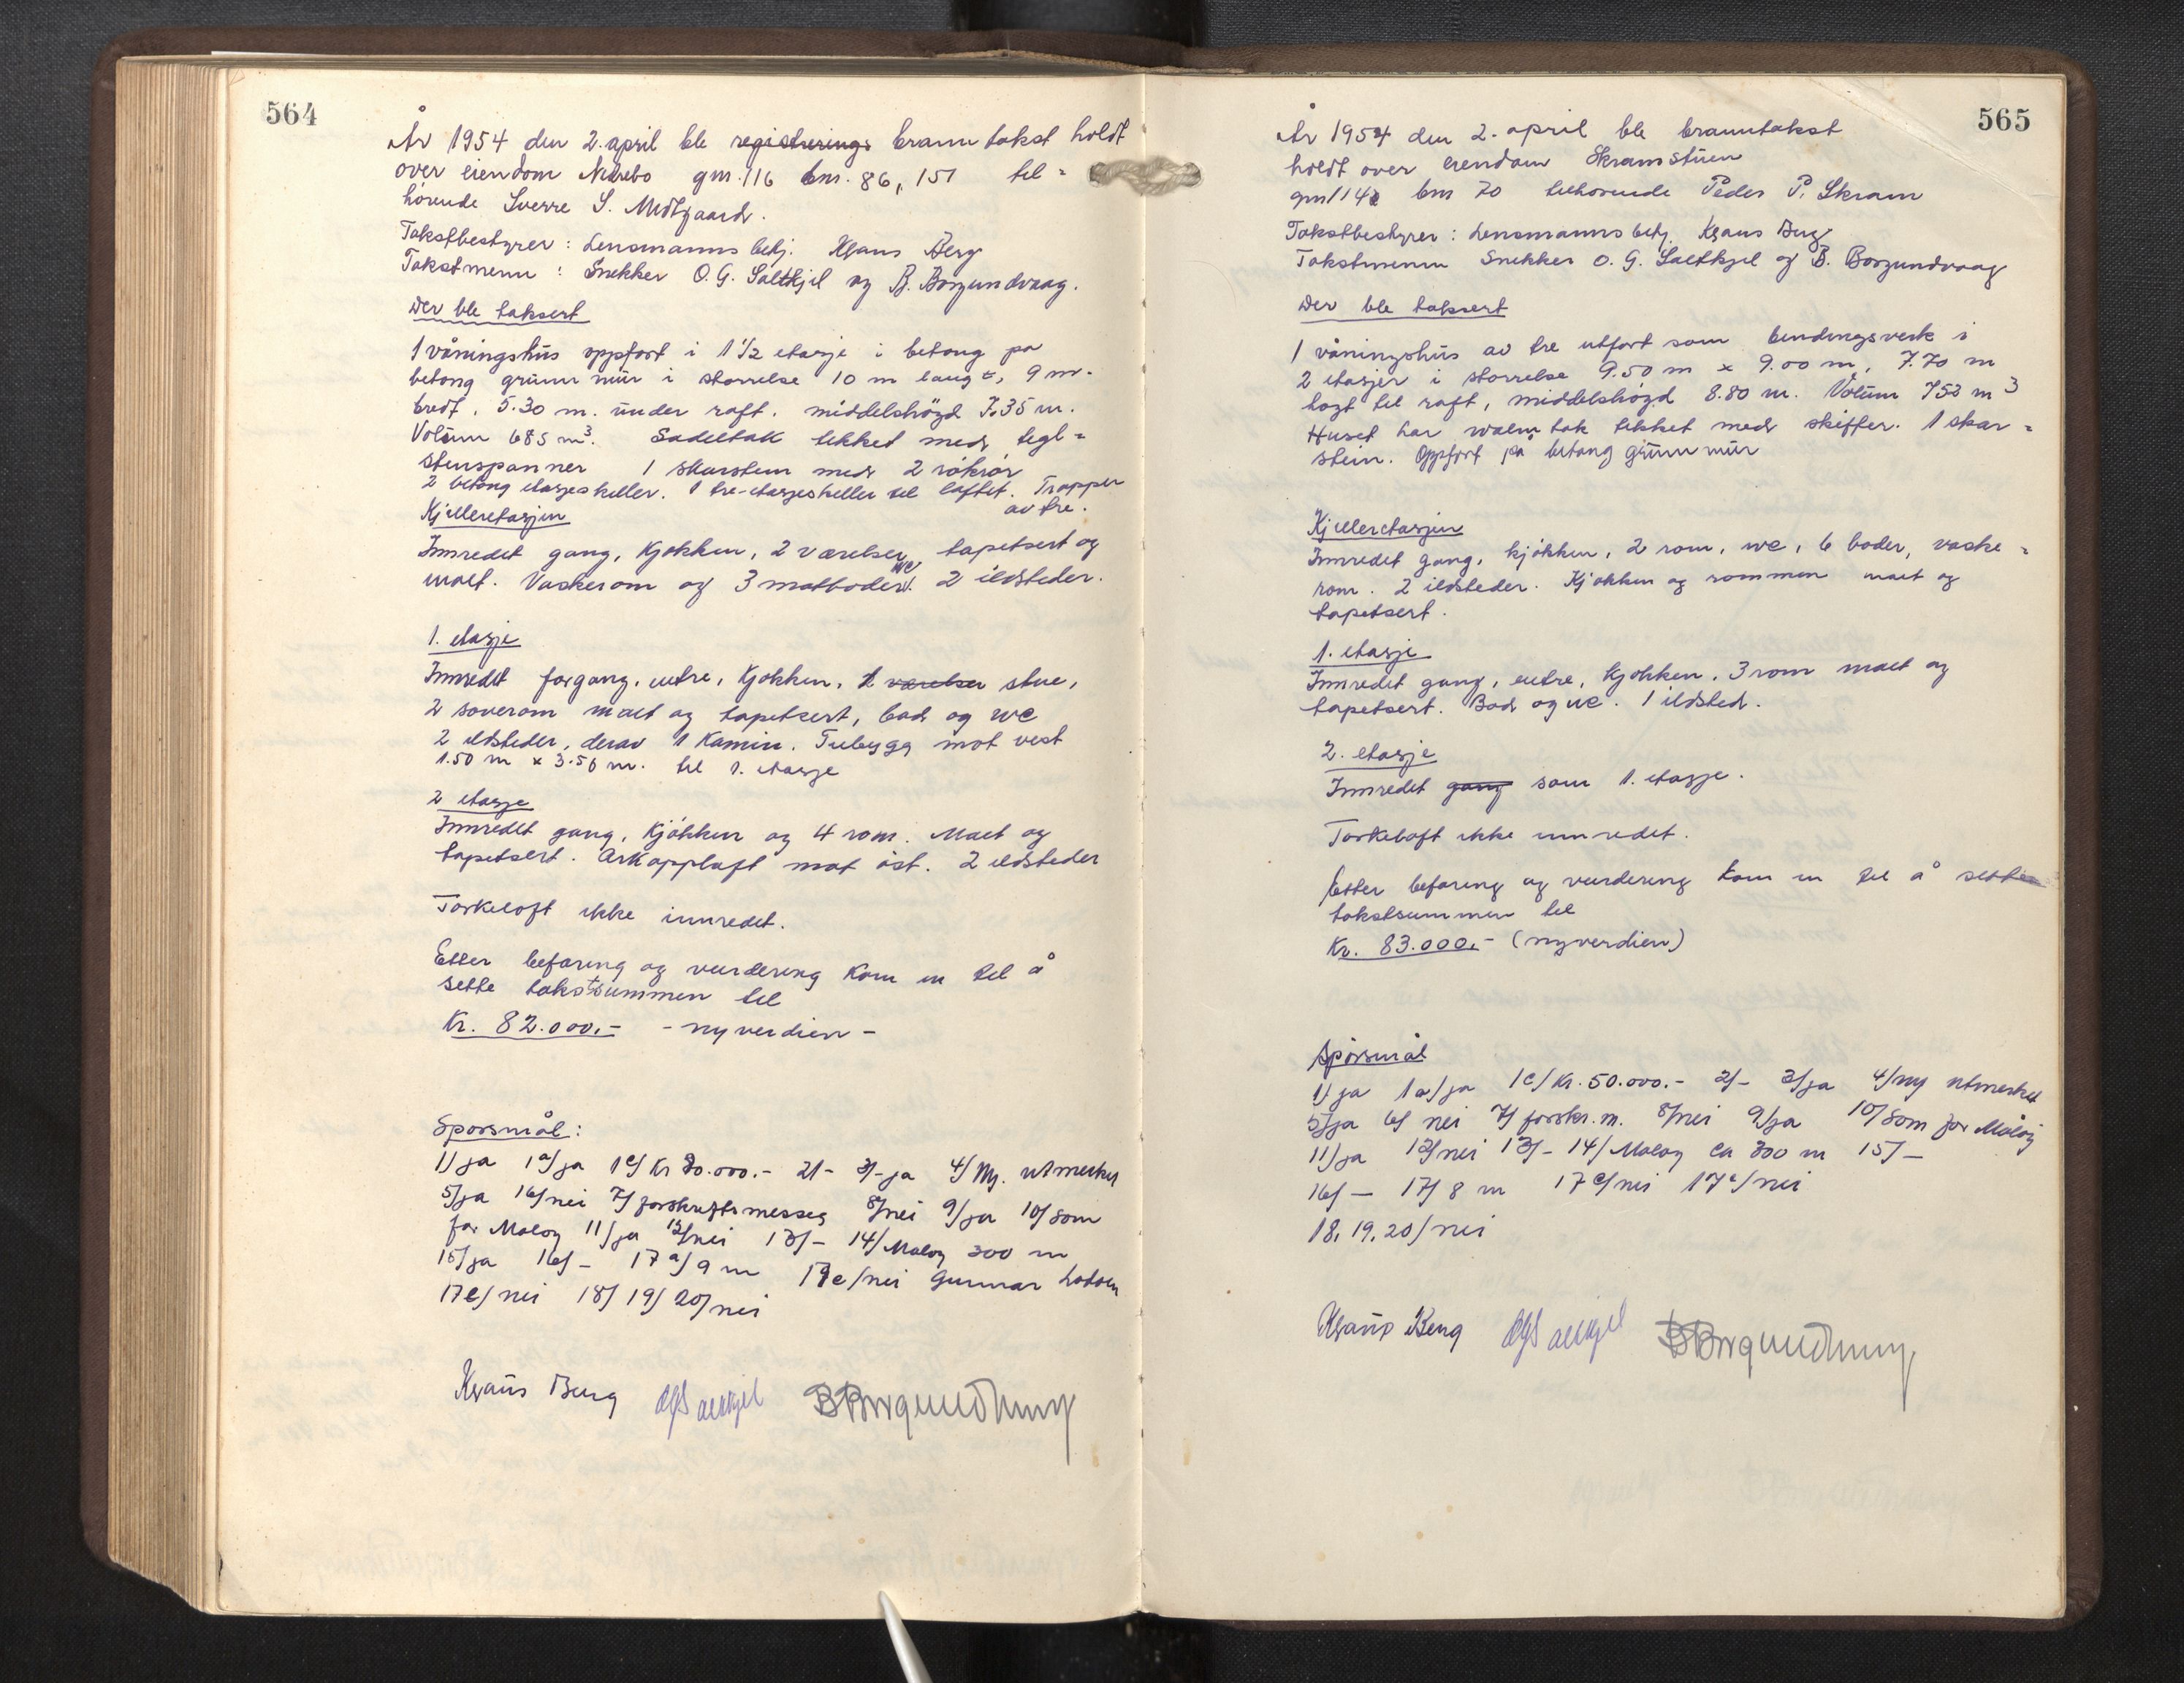 564
År 1954 den 2. april ble registrerings branntakst holdt
over eiendom Nerebo gnr. 116 bnr. 86, 151 til=
hørende Sverre S. Midtgaard.
Takstbestyrer: Lensmannsbetj. Kjaus Berg
Takstmenn: Snekker O. G. Saltkjel og B. Borgundvaag.
Der ble taksert
1 våningshus oppført i 1 1/2 etasje i betong på
betong grunnmur i størrelse 10 m langt, 9 m.
bredt. 5.30 m. under raft. middelshøgd 7.35 m.
Volum 685 m³. Sadeltak tekket med tegl=
stenspanner 1 skorstein med 2 røkrør
2 betong etasjeskiller. 1 tre-etasjeskiller til loftet. Trapper
av tre.
Kjelleretasjen
Innredet gang, kjøkken, 2 værelser, tapetsert og
malt. Vaskerom og 3 matboder. WC 2 ildsteder.
1. etasje
Innredet forgang, entre, kjøkken, 2 værelser stue,
2 soverom malt og tapetsert, bad og WC
2 ildsteder, derav 1 kamin. Tilbygg mot vest
1.50 m x 3.50 m. til 1. etasje
2 etasje
Innredet gang, kjøkken og 4 rom. Malt og
tapetsert. Arkoppløft mot øst. 2 ildsteder
Tørkeloft ikke innredet.
Etter befaring og vurdering kom en til å
sette takstsummen til
Kr. 82.000.- - nyverdien -
Spørsmål:
1/ ja 1a/ ja 1c/ Kr 80.000.- 2/- 3/- ja 4/ Ny. utmerket
5/ ja 16/ nei 7/ forskriftsmesseg 8/ nei 9/ ja 10/ som
for Måløy 11/ ja 12/ nei 13/- 14/ Måløy 300 m
15/ ja 16/- 17a/ 9 m 17c/ nei Gunnar
17e/ nei 18/ 19/ 20/ nei
Kjaus Berg OGSaltkjel BBorgundvaag
565
År 1954 den 2. april ble branntakst
holdt over eiendom Skramstuen
gnr 114 bnr 70 tilhørende Peder P. Skram
Takstbestyrer: Lensmannsbetj. Kjaus Berg
Takstmenn Snekker O. G. Saltkjel og B. Borgundvaag
Der ble taksert
1 våningshus av tre utført som bindingsverk i
2 etasjer i størrelse 9.50 m x 9.00 m, 7.70 m
høgt til raft, middelshøgd 8.80 m. Volum 753 m³
Huset har walm tak tekket med skiffer. 1 skor=
stein. Oppført på betong grunnmur
Kjelleretasjen
Innredet gang, kjøkken, 2 rom, wc, 6 boder, vaske=
rom. 2 ildsteder. Kjøkken og rommen malt og
tapetsert.
1. etasje
Innredet gang, entre, kjøkken, 3 rom malt og
tapetsert. Bad og wc. 1 ildsted.
2. etasje
Innredet gang som 1. etasje.
Tørkeloft ikke innredet.
Etter befaring og vurdering kom en til å sette
takstsummen til
Kr. 83.000.- (nyverdien)
Spørsmål
1/ ja 1a/ ja 1c/ Kr. 50.000.- 2/- 3/ ja 4/ ny utmerket
5/ ja 6/ nei 7/ forskr.m. 8/ nei 9/ ja 10/ Som for Måløy
11/ ja 12/ nei 13/- 14/ Måløy ca 300 m 15/ -
16/ - 17/ 8 m 17c/ nei 17e/ nei
18, 19, 20/ nei
Kjaus Berg OGSaltkjel BBorgundvaag